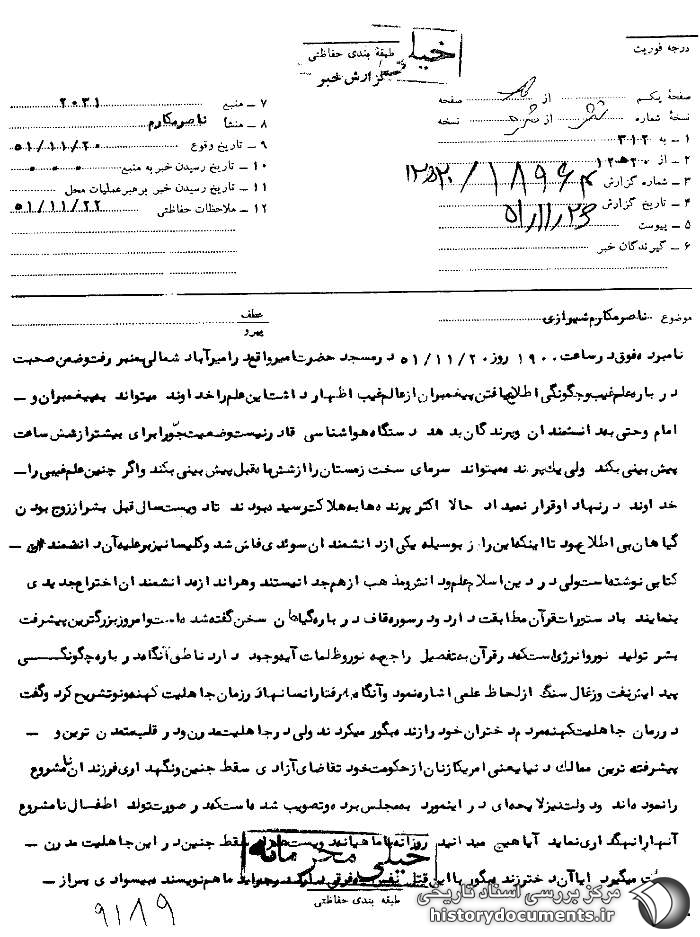 درجه فوریت
طبقه بندی حفاظتی
خیلی
گزارش خبر
صفحهٔ یکم از صفحه
نسخهٔ شماره از نسخه
۱ - به ۳۱۲
۲ - از ۱۲ ه ۲۰
۳ - شماره گزارش ۱۸۹۶۴ / ۲۰ ه ۱۲
۴ - تاریخ گزارش ۵۱/۱۱/۲۳
۵ - پیوست
۶ - گیرندگان خبر
۷ - منبع ۲۰۳۱
۸ - منشأ ناصر مکارم
۹ - تاریخ وقوع ۵۱/۱۱/۲۰
۱۰ - تاریخ رسیدن خبر به منبع
۱۱ - تاریخ رسیدن خبر برهبر عملیات محل
۱۲ - ملاحظات حفاظتی ۵۱/۱۱/۲۲
موضوع ناصر مکارم شیرازی
عطف
پیرو
نامبرده فوق در ساعت ۱۹۰۰ روز ۵۱/۱۱/۲۰ در مسجد حضرت امیر واقع در امیرآباد شمالی بمنبر رفت و ضمن صحبت
درباره علم غیب و چگونگی اطلاع یافتن پیغمبران از عالم غیب اظهار داشت این علم را خداوند میتواند به پیغمبران و -
امام و حتی به دانشمندان و پرندگان بدهد دستگاه هواشناسی قادر نیست وضعیت جو را برای بیشتر از شش ساعت
پیش بینی بکند ولی یک پرنده میتواند سرمای سخت زمستان را از شش ماه قبل پیش بینی بکند و اگر چنین علم غیبی را -
خداوند در نهاد او قرار نمیداد حالا اکثر پرنده ها به هلاکت رسیده بودند تا دویست سال قبل بشر از زوج بودن
گیاهان بی اطلاع بود تا اینکه این راز بوسیله یکی از دانشمندان سوئدی فاش شد و کلیسا نیز بر علیه آن دانشمند -
کتابی نوشته است ولی در دین اسلام علم و دانش و مذهب از هم جدا نیستند و هر اندازه دانشمندان اختراع جدیدی
بنمایند با دستورات قرآن مطابقت دارد و در سوره قاف درباره گیاهان سخن گفته شده است و امروز بزرگترین پیشرفت
بشر تولید نور و انرژی است که در قرآن به تفصیل راجع به نور و ظلمات آیه وجود دارد ناطق آنگاه درباره چگونگی
پیدایش نفت و زغال سنگ از لحاظ علمی اشاره نمود و آنگاه به رفتار انسانها در زمان جاهلیت کهنه و نو تشریح کرد و گفت
در زمان جاهلیت کهنه مردم دختران خود را زنده بگور میکردند ولی در جاهلیت مدرن و در قلب متمدن ترین و -
پیشرفته ترین ممالک دنیا یعنی امریکا زنان از حکومت خود تقاضای آزادی سقط جنین و نگهداری فرزندان نامشروع
را نموده اند و دولت نیز لایحه ای در اینمورد به مجلس برده و تصویب شده است که در صورت تولد اطفال نامشروع
آنها را نگهداری نماید آیا هیچ میدانید روزانه یا ماهیانه دویست هزار سقط جنین در این جاهلیت مدرن -
میگیرد آیا آن دختر زنده بگور با این قتل نفس فرقی دارد در جراید ما هم نویسنده بیسوادی پس از -
خیلی محرمانه
طبقه بندی حفاظتی
۹۱۸۹
مرکز بررسی اسناد تاریخی
historydocuments.ir